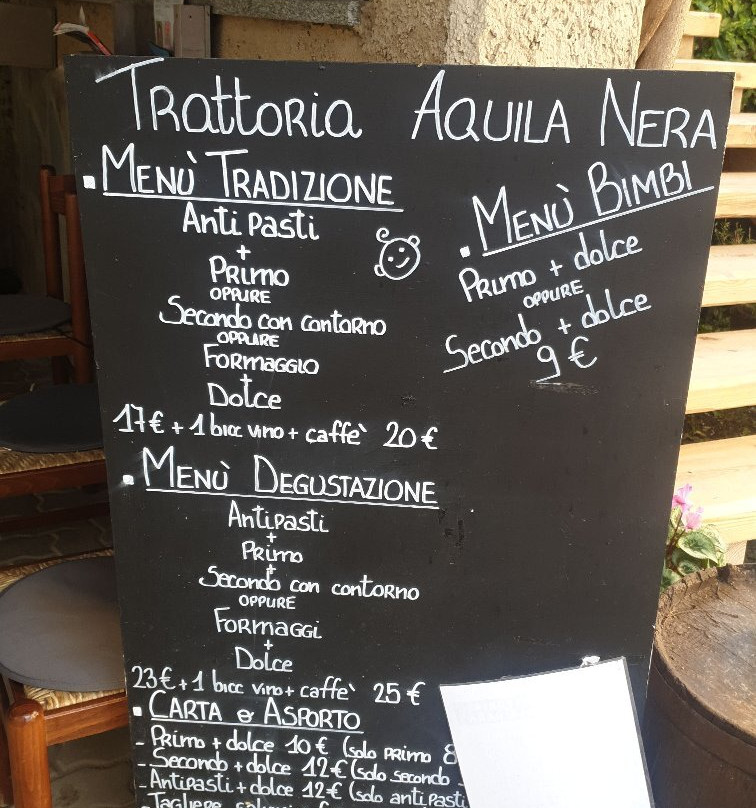 Trattoria AQUILA NERA
. MENÙ TRADIZIONE
Antipasti
+
PRIMO
OPPURE
Secondo con contorno
OPPURE
FORMAGGIO
+
DOLCE
17€ + 1 bicc vino + caffè 20€
. MENÙ DEGUSTAZIONE
Antipasti
+
PRIMO
+
Secondo con contorno
OPPURE
FORMAGGI
+
DOLCE
23€ + 1 bicc vino + caffè 25€
. CARTA e ASPORTO
- Primo + dolce 10€ (solo primo 8
- Secondo + dolce 12€ (solo secondo
- Antipasti + dolce 12€ (solo antipasti
- Tagliere
. MENÙ BIMBI
PRIMO + dolce
OPPURE
Secondo + dolce
9€